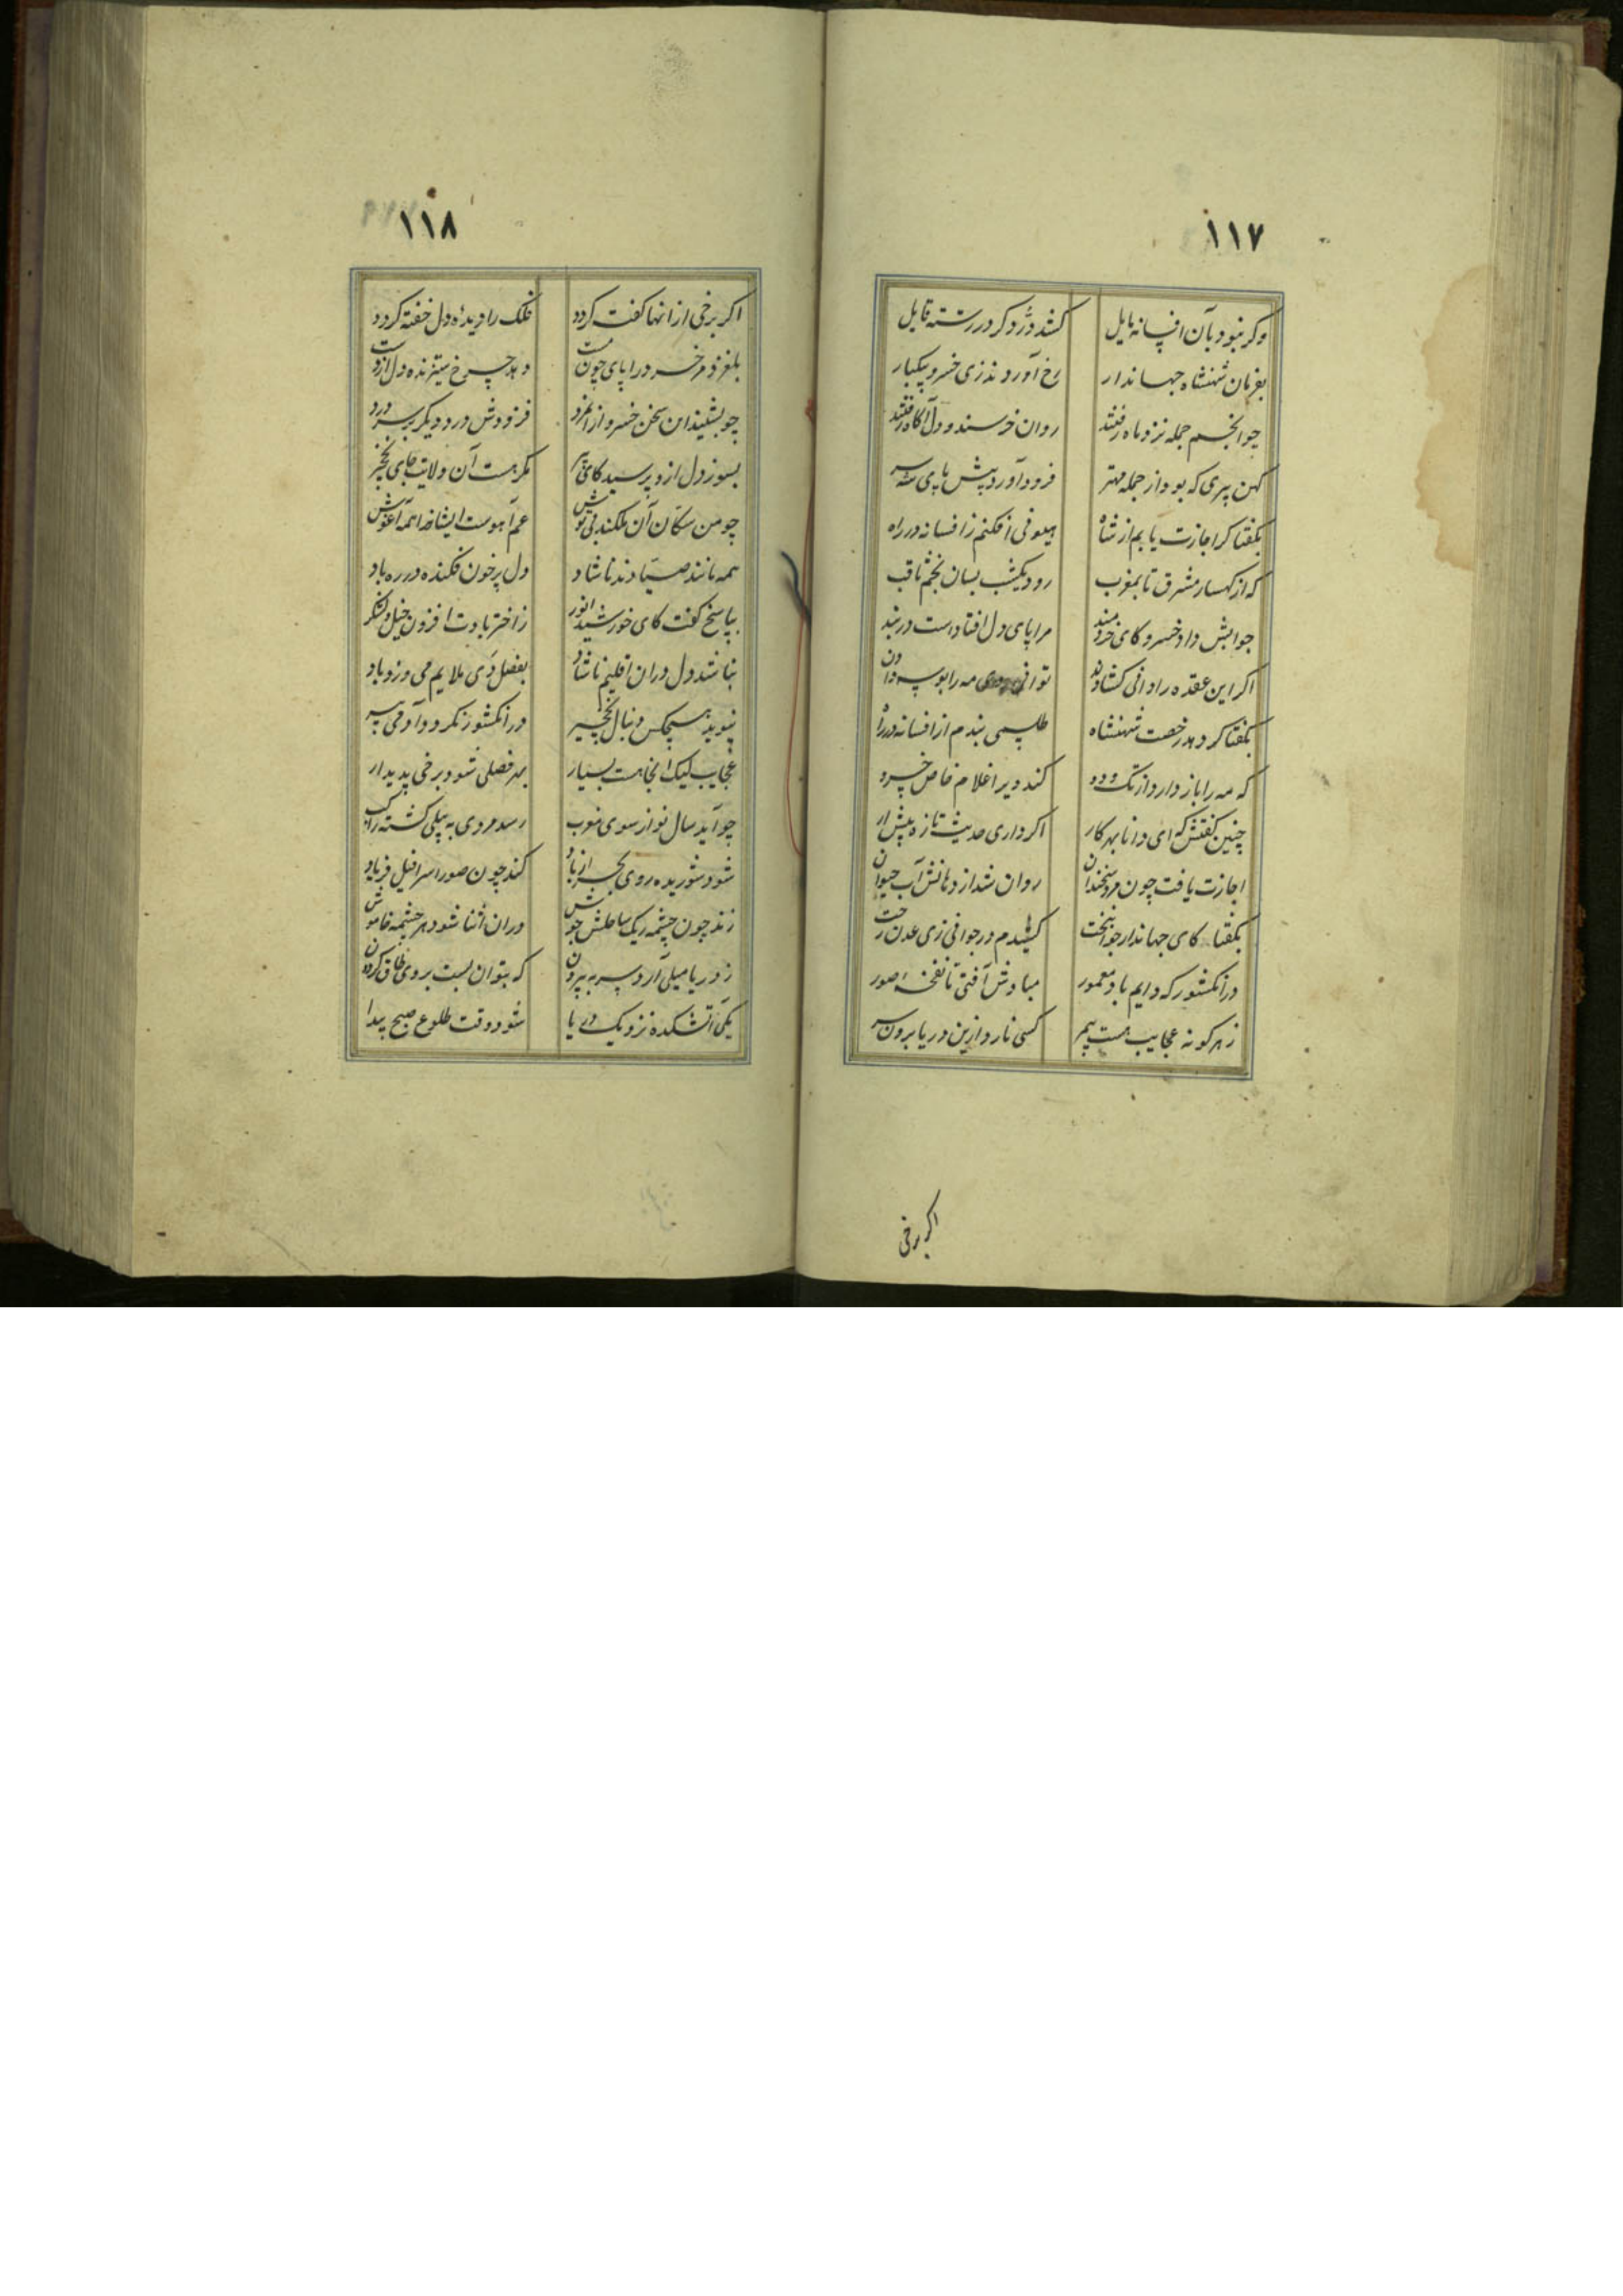 ۱۱۷
وکر نبود بآن افسانه مایل کشد دُرّ دکر در رشته قابل
بفرمان شهنشاه جهاندار رخ آوردند زی خسرو بیکبار
چو انجم جمله نزد ماه رفتند روان خرسند و دل آکاه رفتند
کهن پیری که بود از جمله مهتر فرود آورد پیش پای شه سر
بکفتا کر اجازت یابم از شاه هیونی افکنم ز افسانه در راه
که از کهسار مشرق تا بمغرب رود یکشب بسان نجم ثاقب
جوابش داد خسرو کای خردمند مرا پای دل افتاده است در بند
اکر این عقده را دانی کشادن توانی روی مه را بوسه دادن
بکفتا کر دهد رخصت شهنشاه طلسمی بندم از افسانه در راه
که مه را باز دارد از تک و دو کند دیر اعلام خاص خسرو
چنین کفتش که ای دانا بهر کار اکر داری حدیث تازه پیش آر
اجازت یافت چون مرد سخندان روان شد از دهانش آب حیوان
بکفتا کای جهاندار جوانبخت کشیدم در جوانی زی عدن رخت
در آنکشور که دایم باد معمور مبادش آفتی تا نفخه صور
ز هر کونه عجایب هست بیمر کسی نارد ازین دریا برون سر
اکر برخی
۱۱۸
اکر برخی از انها کفت کردد فلک را دیده دل خفته کردد
بلغزد مر خرد را پای چون مست دهد چرخ ستیزنده دل از دست
چو بشنید این سخن خسرو از انمرد فزودش درد دیکر بر سر درد
بسوز دل ازو پرسید کای پیر مکر هست آن ولایت جای نخچیر
چو من سکّان آن ملکند بی توش غم آهوست ایشانرا هم آغوش
همه مانند صیّادند ناشاد دل پرخون فکنده در ره باد
بپاسخ کفت کای خورشید انور ز اختر بادت افزون خیل و لشکر
نباشد دل دران اقلیم ناشاد بفصل دَی ملایم می وزد باد
نپوید هیچکس دنبال نخچیر در انکشور نکردد آدمی پیر
عجایب لیک انجا هست بسیار بهر فصلی شود برخی پدیدار
چو آید سال نو از سوی مغرب رسد مردی به پیلی کشته راکب
شود شوریده روی بحر از باد کند چون صور اسرافیل فریاد
زند چون چشمه ریک ساحلش جوش دران اثنا شود هر چشمه خاموش
ز دریا میلی آرد سر به بیرون که بتوان بست بروی طاق کردون
یکی آتشکده نزدیک دریا شود وقت طلوع صبح پیدا